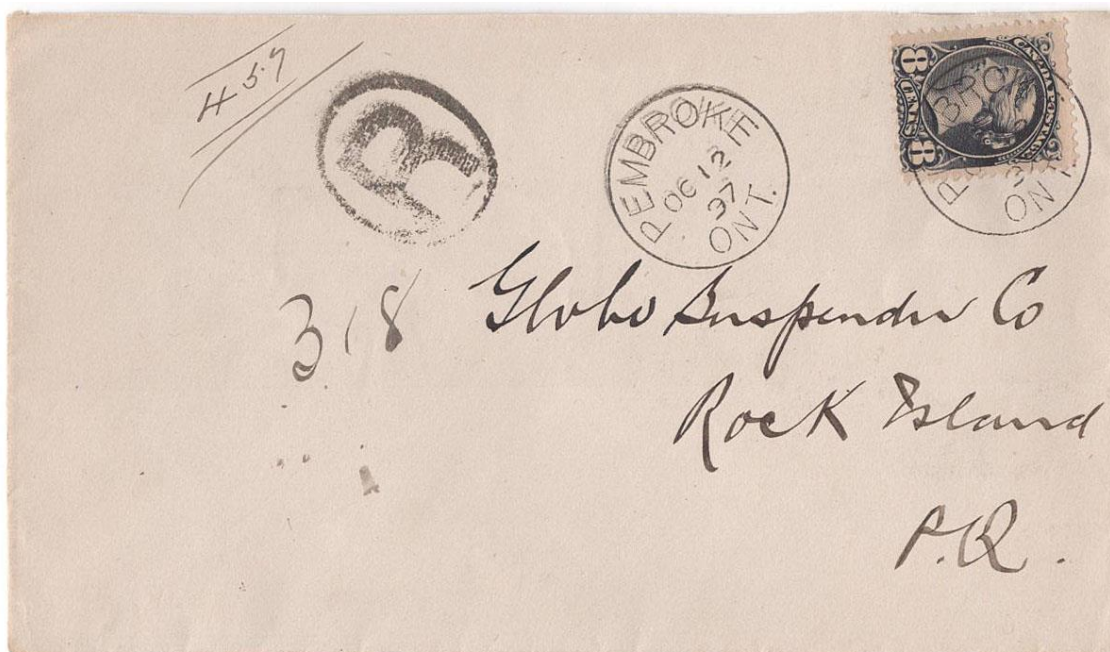 457
R
PEMBROKE
OC 12
97
ONT.
8 8
CENTS
CANADA POSTAGE
ONT
318
Globe Suspender Co
Rock Island
P.Q.